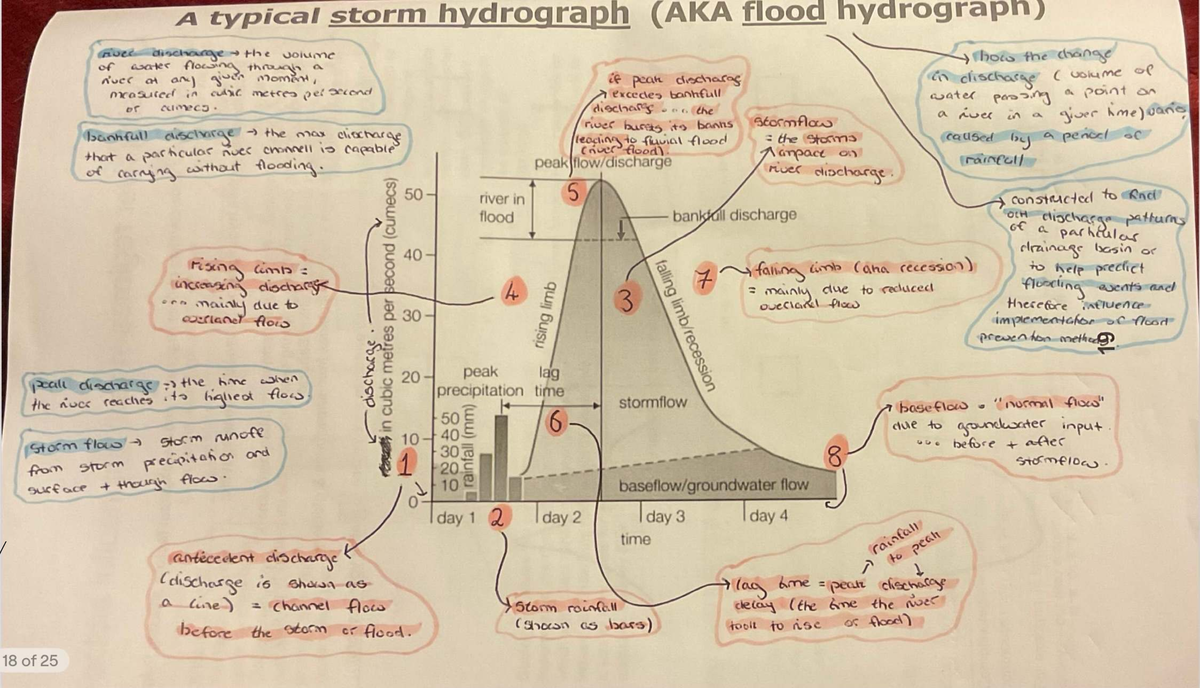 A typical storm hydrograph (AKA flood hydrograph)
river discharge → the volume
of water flowing through a
river at any given moment,
measured in cubic metres per second
or cumecs.
bankfull discharge → the max discharge
that a particular river channell is capable
of carrying without flooding.
if peak discharge
excedes bankfull
discharge .... the
river bursts its banks
leading to fluvial flood
(river flood).
stormflow
= the storms
impact on
river discharge.
how the change
in discharge (volume of
water passing a point on
a river in a given time) varies
caused by a period of
rainfall
constructed to find
out discharge patterns
of a particular
drainage basin or
to help predict
flooding events and
therefore influence
implementation of flood
prevention methods
19
peak flow/discharge
5
50
river in
flood
bankfull discharge
Rising limb =
increasing discharge
... mainly due to
overland flow
4
40
3
7
falling limb (aka recession)
= mainly due to reduced
overland flow
30
rising limb
falling limb/recession
discharge
in cubic metres per second (cumecs)
peak discharge → the time when
the river reaches its highest flow.
20
peak
precipitation
lag
time
stormflow
6
storm flow → storm runoff
from storm precipitation and
surface + though flow.
10
1
0
50
40
30
20
10
rainfall (mm)
baseflow/groundwater flow
8
baseflow = "normal flow"
due to groundwater input.
... before + after
stormflow.
day 1
2
day 2
day 3
day 4
time
antecedent discharge
(discharge is shown as
a line) = channel flow
before the storm or flood.
storm rainfall
(shown as bars)
rainfall
to peak
lag time = peak discharge
delay (the time the river
took to rise or flood)
18 of 25